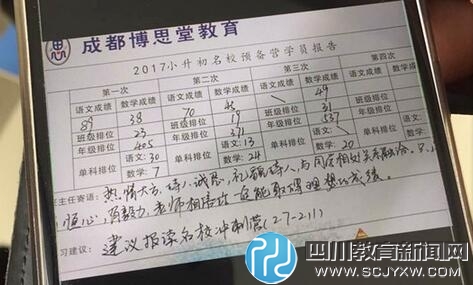 思
成都博思堂教育
2017小升初名校预备营学员报告
第一次 第二次 第三次 第四次
语文成绩 数学成绩 语文成绩 数学成绩 语文成绩 数学成绩 语文成绩
89 38 70 49
班级排位 23 班级排位 19 班级排位 31 班级排位
年级排位 405 年级排位 371 年级排位 537 年级排位
单科排位 语文: 30 单科排位 语文: 13 单科排位 语文: 单科排位
数学: 7 数学: 24 数学: 20
主任寄语: 热情大方, 待人诚恳, 礼貌待人, 与同学相处关系融洽.
恒心, 有毅力, 老师相信你一定能取得理想的成绩.
习建议: 建议报读名校冲刺营(2.7-2.11)
四川教育新闻网
WWW.SCJYXW.COM